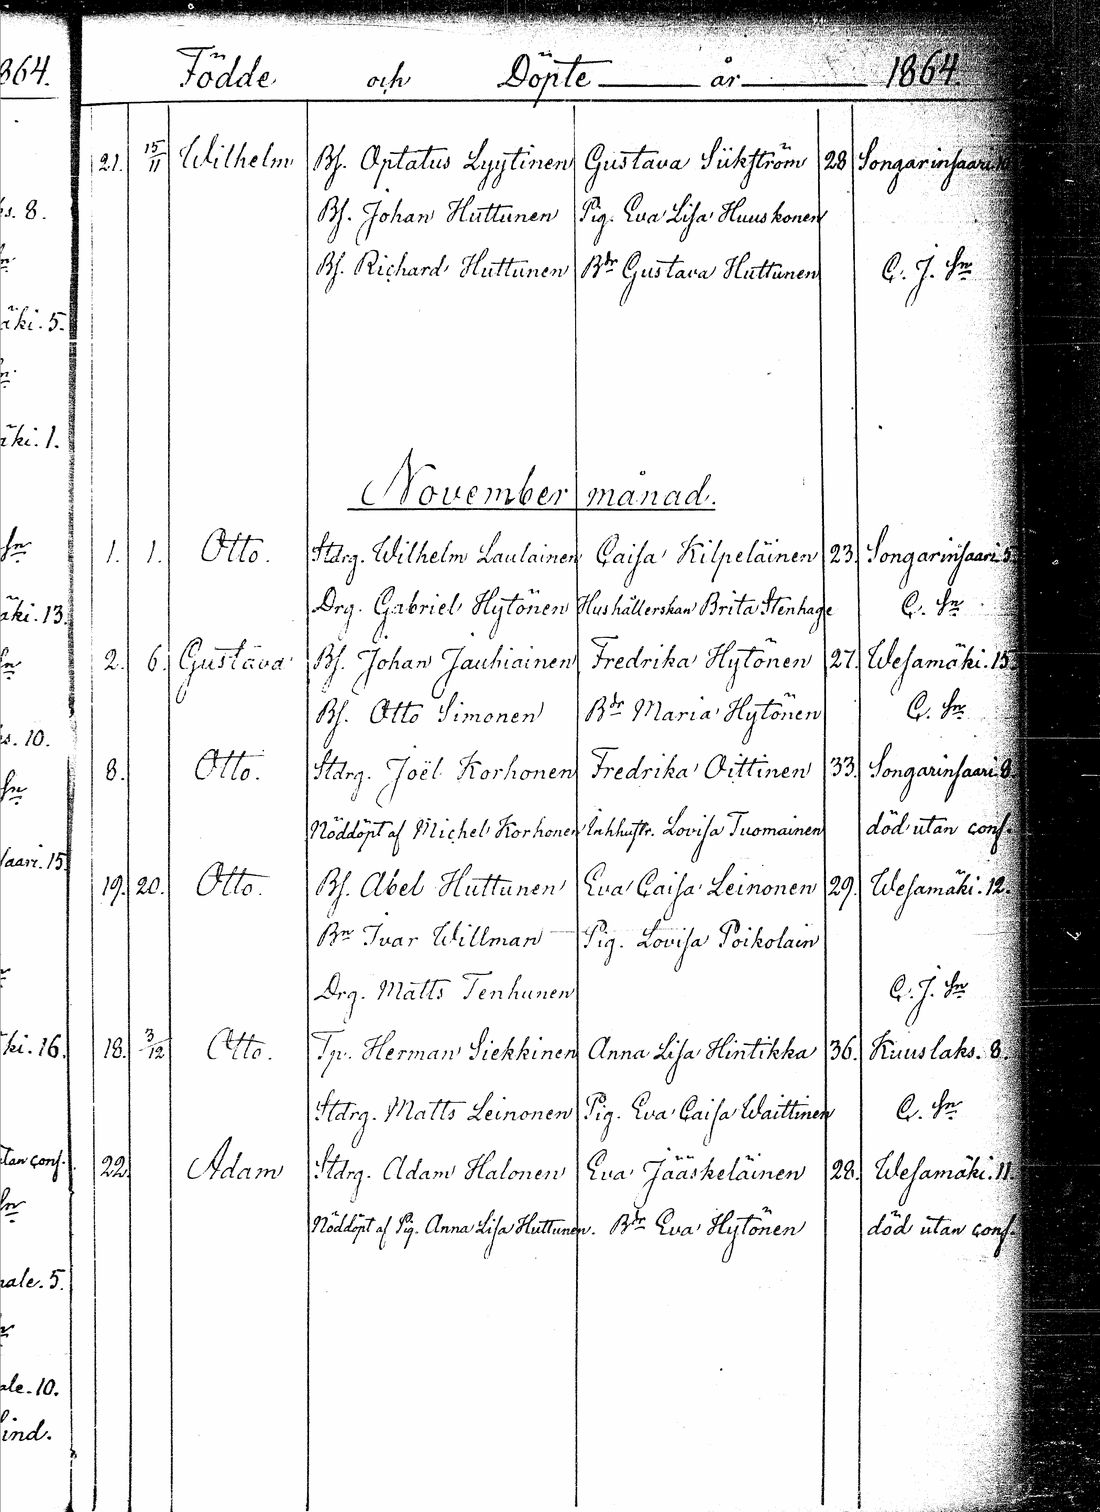 864. Födde och Döpte år 1864.
21. 15/11 Wilhelm Bf. Optatus Lyytinen Gustava Sükström 28 Songarinsaari.
ks. 8. Bf. Johan Huttunen Pig. Eva Lisa Huuskonen
Bf. Richard Huttunen Bdr Gustava Huttunen C. J. hn
äki. 5.
äki. 1.
November månad.
hn 1. 1. Otto. Stdrg. Wilhelm Laulainen Caisa Kilpeläinen 23. Songarinsaari 5.
äki. 13. Drg. Gabriel Hytönen Hushållerskan Brita Stenhage C. hn
hn 2. 6. Gustava Bf. Johan Jauhiainen Fredrika Hytönen 27. Wesamäki. 15.
s. 10. Bf. Otto Simonen Bdr Maria Hytönen C. hn
hn 8. Otto. Stdrg. Joël Korhonen Fredrika Oittinen 33. Songarinsaari 8.
Nöddöpt af Michel Korhonen Inhhustr. Lovisa Tuomainen död utan conf.
saari. 15. 19. 20. Otto. Bf. Abel Huttunen Eva Caisa Leinonen 29. Wesamäki. 12.
Bn Ivar Willman Pig. Lovisa Poikolain
Drg. Matts Tenhunen C. J. hn
ki. 16. 18. 3/12 Otto. Tp. Herman Siekkinen Anna Lisa Hintikka 36. Kuuslaks. 8.
Stdrg. Matts Leinonen Pig. Eva Caisa Waittinen C. hn
tan conf. 22. Adam Stdrg. Adam Halonen Eva Jääskeläinen 28. Wesamäki. 11.
hn Nöddöpt af Pig. Anna Lisa Huttunen. Bdr Eva Hytönen död utan conf.
ale. 5.
ale. 10.
ind.